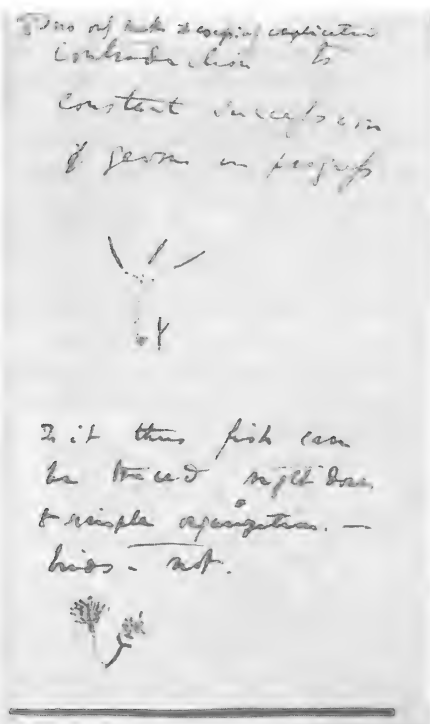 no only makes it excessively complicated
contradiction to
constant succession
of germs in progress
Is it thus fish can
be traced right down
to simple organization. —
birds – not.